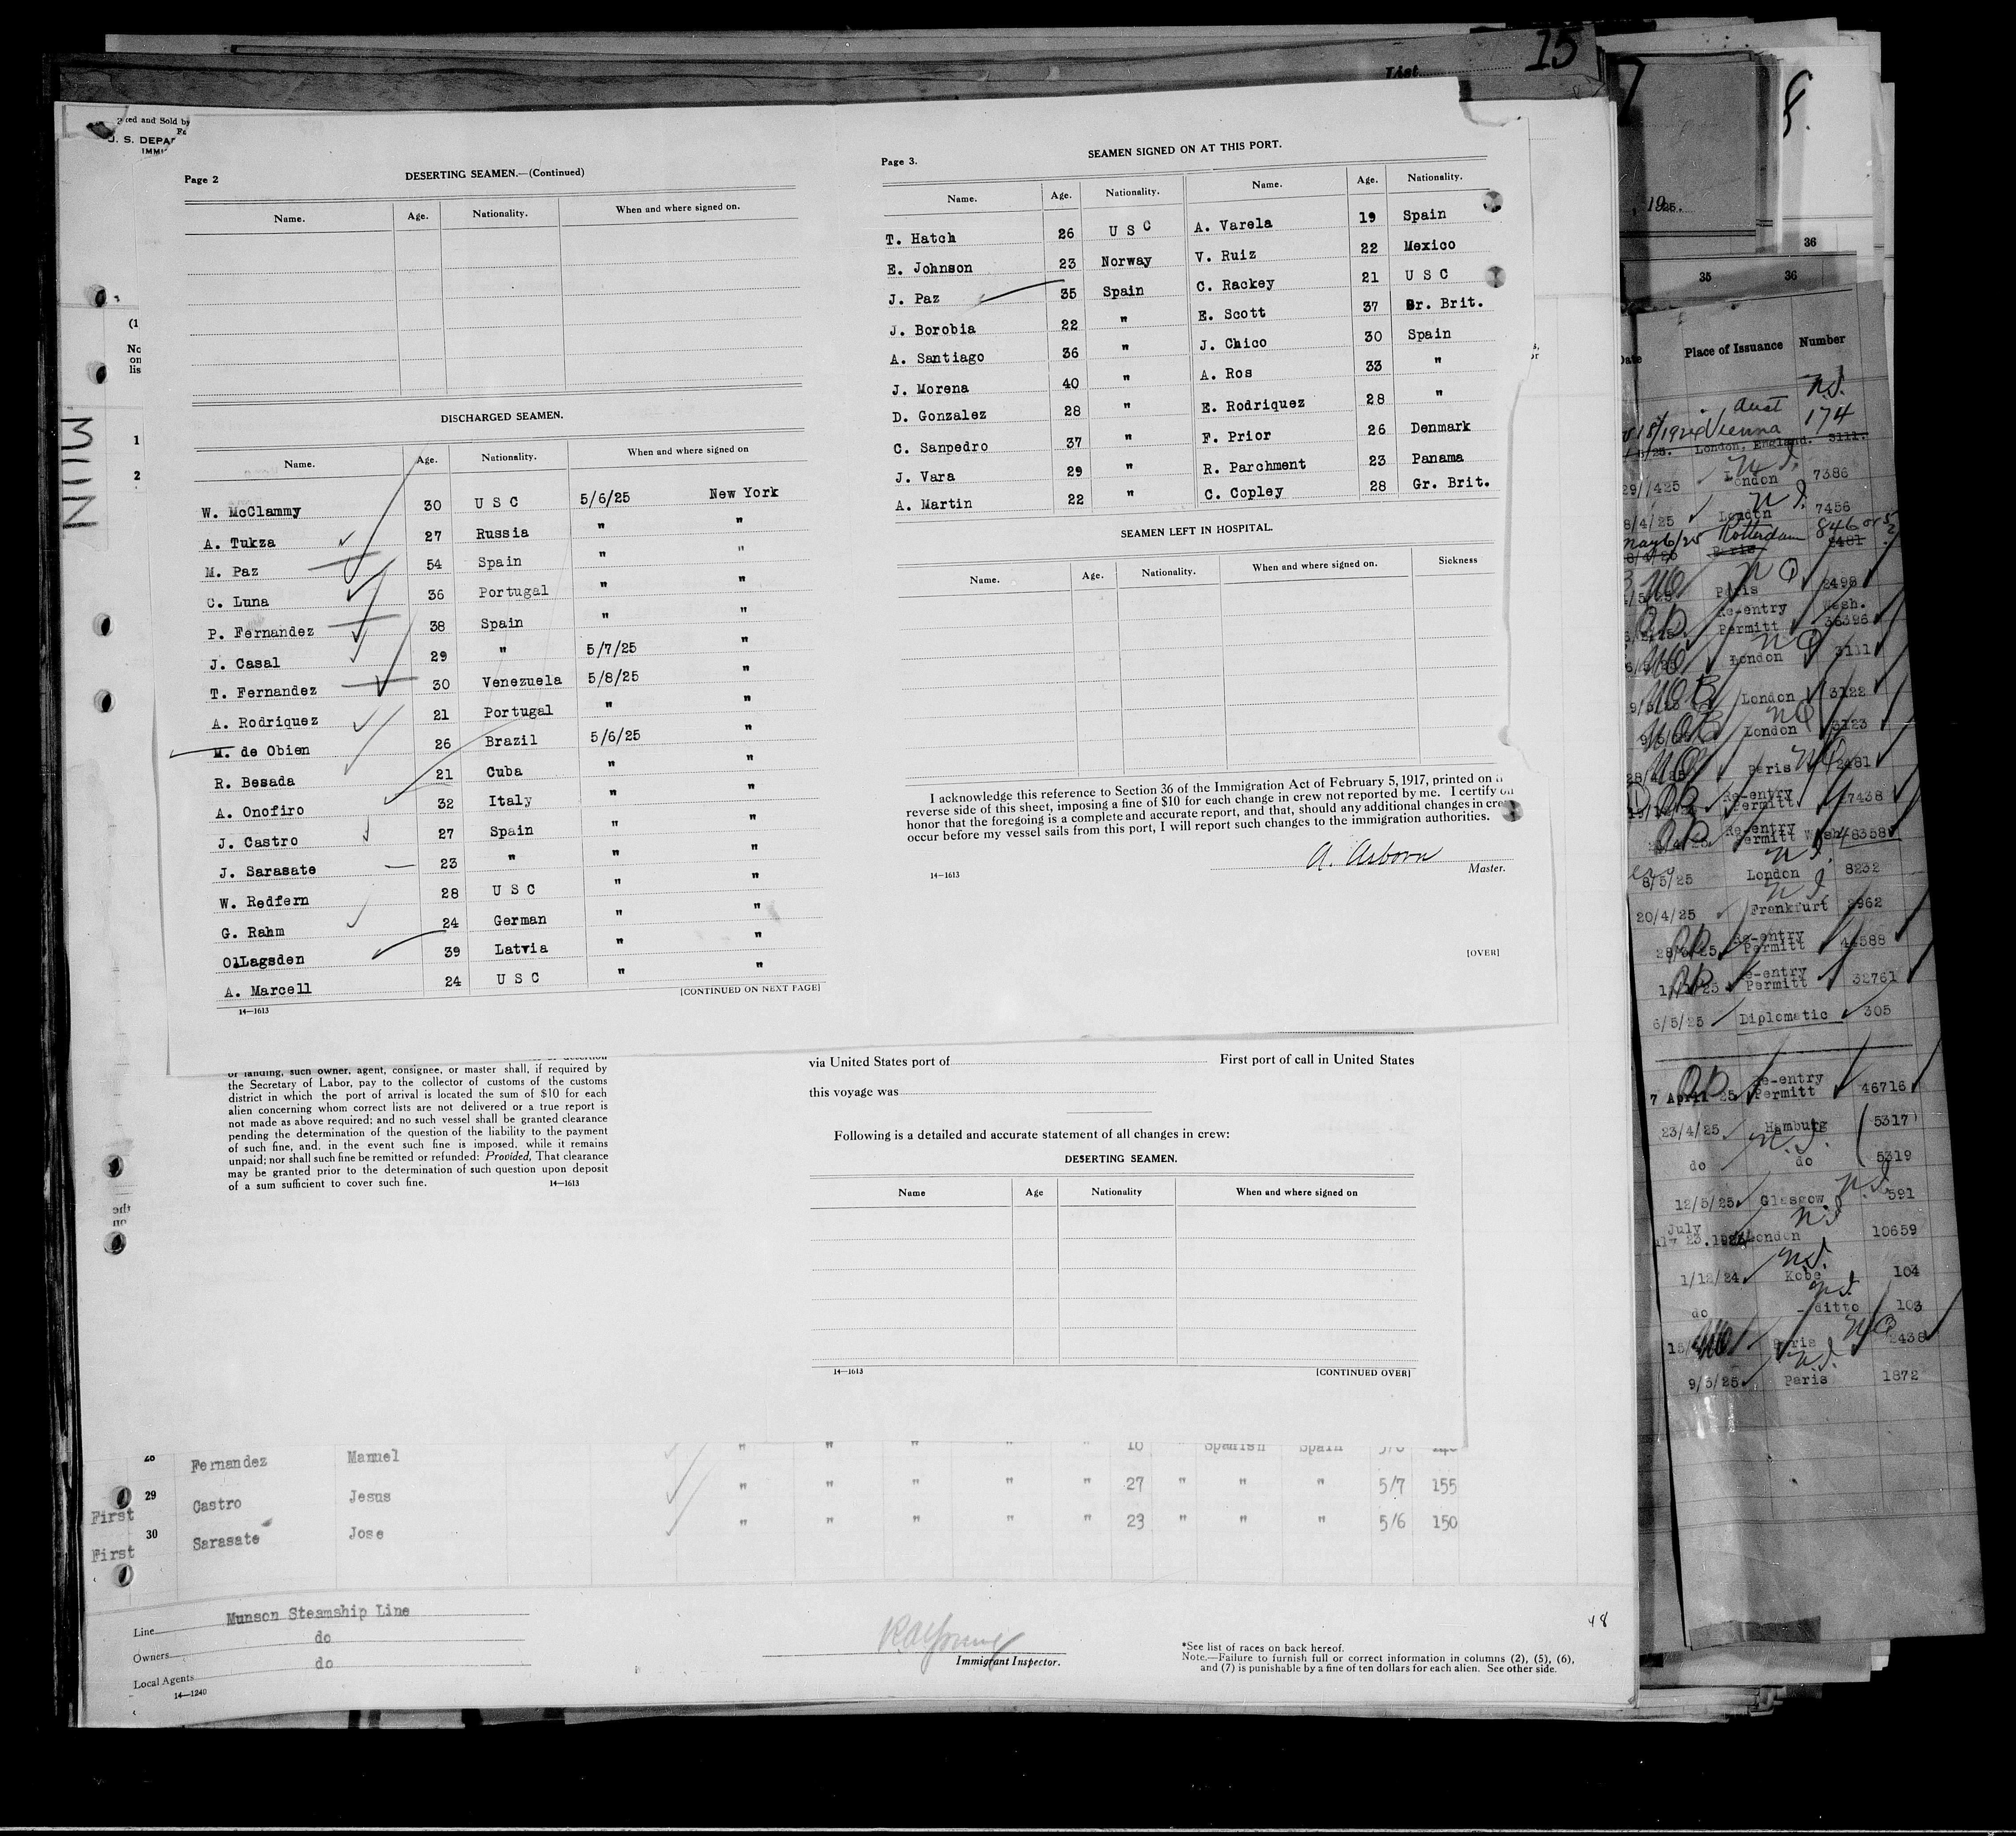 List 15
ed and Sold by
U. S. DEPA
IMMI
Page 2
DESERTING SEAMEN.—(Continued)
Name. Age. Nationality. When and where signed on.
DISCHARGED SEAMEN.
Name. Age. Nationality. When and where signed on
W. McClammy 30 U S C 5/6/25 New York
A. Tukza 27 Russia " "
M. Paz 54 Spain " "
C. Luna 36 Portugal " "
P. Fernandez 38 Spain " "
J. Casal 29 " 5/7/25 "
T. Fernandez 30 Venezuela 5/8/25 "
A. Rodriquez 21 Portugal " "
M. de Obien 26 Brazil 5/6/25 "
R. Besada 21 Cuba " "
A. Onofiro 32 Italy " "
J. Castro 27 Spain " "
J. Sarasate 23 " " "
W. Redfern 28 U S C " "
G. Rahm 24 German " "
OlLagsden 39 Latvia " "
A. Marcell 24 U S C " "
[CONTINUED ON NEXT PAGE]
14—1613
Page 3.
SEAMEN SIGNED ON AT THIS PORT.
Name. Age. Nationality. Name. Age. Nationality.
T. Hatch 26 U S C A. Varela 19 Spain
E. Johnson 23 Norway V. Ruiz 22 Mexico
J. Paz 35 Spain C. Rackey 21 U S C
J. Borobia 22 " E. Scott 37 Gr. Brit.
A. Santiago 36 " J. Chico 30 Spain
J. Morena 40 " A. Ros 33 "
D. Gonzalez 28 " E. Rodriquez 28 "
C. Sanpedro 37 " F. Prior 26 Denmark
J. Vara 29 " R. Parchment 23 Panama
A. Martin 22 " C. Copley 28 Gr. Brit.
SEAMEN LEFT IN HOSPITAL.
Name. Age. Nationality. When and where signed on. Sickness
I acknowledge this reference to Section 36 of the Immigration Act of February 5, 1917, printed on
reverse side of this sheet, imposing a fine of $10 for each change in crew not reported by me. I certify on
honor that the foregoing is a complete and accurate report, and that, should any additional changes in crew
occur before my vessel sails from this port, I will report such changes to the immigration authorities.
A. Asborn
14—1613 Master.
[OVER]
of landing, such owner, agent, consignee, or master shall, if required by
the Secretary of Labor, pay to the collector of customs of the customs
district in which the port of arrival is located the sum of $10 for each
alien concerning whom correct lists are not delivered or a true report is
not made as above required; and no such vessel shall be granted clearance
pending the determination of the question of the liability to the payment
of such fine, and, in the event such fine is imposed, while it remains
unpaid; nor shall such fine be remitted or refunded: Provided, That clearance
may be granted prior to the determination of such question upon deposit
of a sum sufficient to cover such fine. 14—1613
via United States port of First port of call in United States
this voyage was
Following is a detailed and accurate statement of all changes in crew:
DESERTING SEAMEN.
Name Age Nationality When and where signed on
14—1613 [CONTINUED OVER]
28 Fernandez Manuel " " " " 18 " Spanish Spain 5/6
29 Castro Jesus " " " " " 27 " " " 5/7 155
First
30 Sarasate Jose " " " " " 23 " " " 5/6 150
First
Line Munson Steamship Line
Owners do
Local Agents do
14—1240
Immigrant Inspector.
48
*See list of races on back hereof.
Note.—Failure to furnish full or correct information in columns (2), (5), (6),
and (7) is punishable by a fine of ten dollars for each alien. See other side.
8.
, 1925.
36
35 36
Date Place of Issuance Number
Vienna 174
London, England. 3111.
London 7386
8/4/25 London 7456
Rotterdam 846
Paris 2481
Paris 2498
Re-entry Wash.
Permitt 36396
London 3111
London 3122
London 3123
28/4/25 Paris 2481
Re-entry
Permitt 27438
Re-entry
Permitt Wash 8358
8/5/25 London 8232
20/4/25 Frankfurt 2962
Re-entry
Permitt 44588
Re-entry
Permitt 32761
6/5/25 Diplomatic 305
7 April 25 Re-entry
Permitt 46716
23/4/25 Hamburg (5317)
do do 5319
12/5/25 Glasgow 591
July 23.1925 London 10659
1/12/24 Kobe 104
do - ditto 103
Paris 2438
9/5/25 Paris 1872